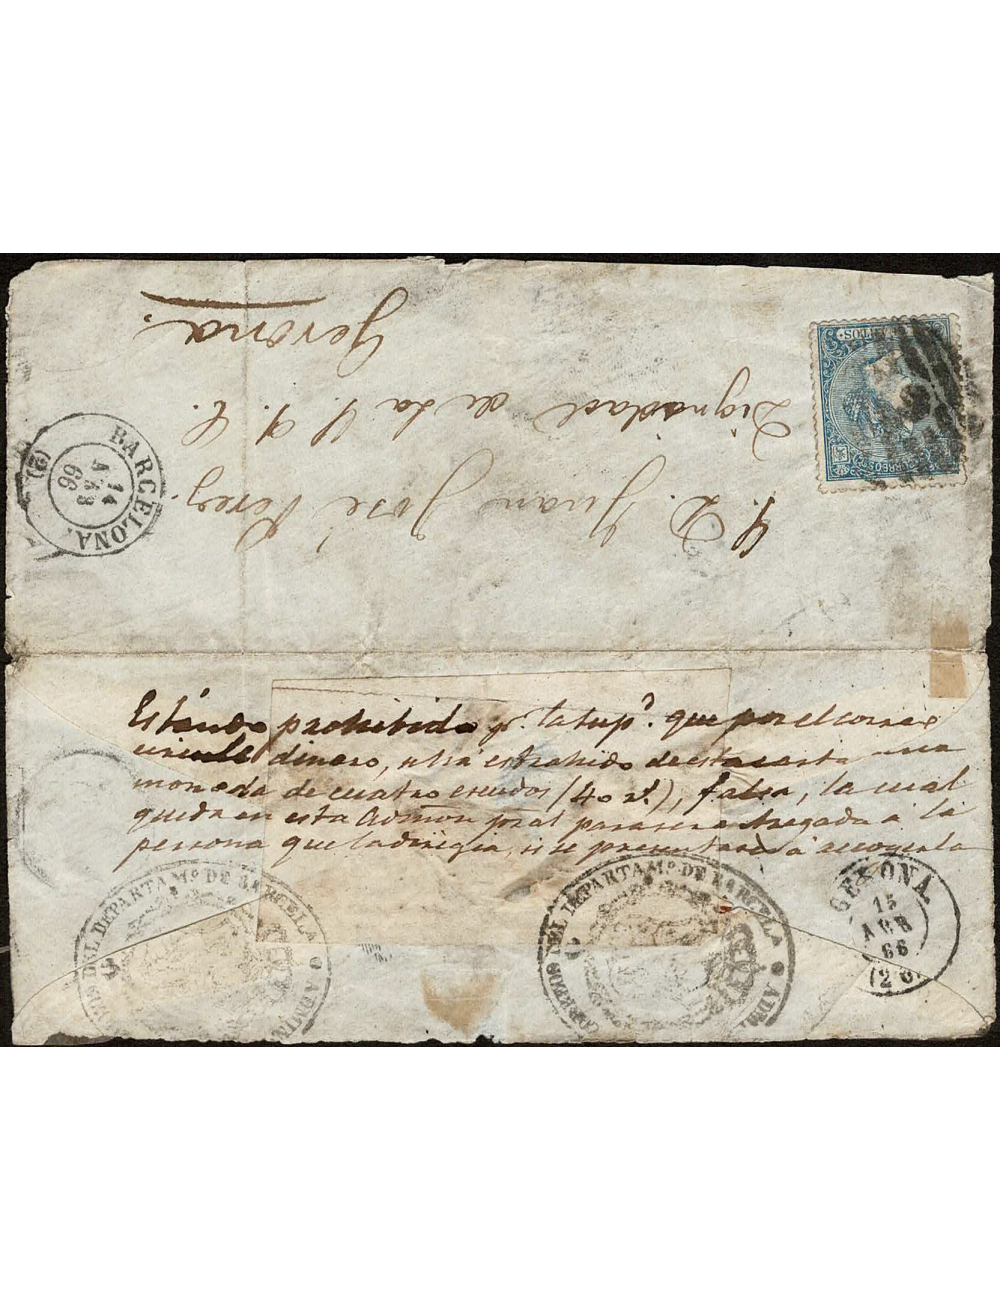 S. D. Juan José Perez.
Dignidad de La S. I. C.
Gerona.
BARCELONA.
14
ABR
66
(2)
CORREOS
Estando prohibido pr. la sup.r que por el correo
circule dinero, se ha estrahido de esta carta una
moneda de cuatro escudos (40 rs.), falsa, la cual
queda en esta Admon pral para ser entregada á la
persona que la dirigia, si se presentara á recogerla
CORREOS DEL DEPARTAMo. DE BARCELLA • ADMIN
CORREOS DEL DEPARTAMo. DE BARCELLA • ADM
GERONA
15
ABR
66
(20)